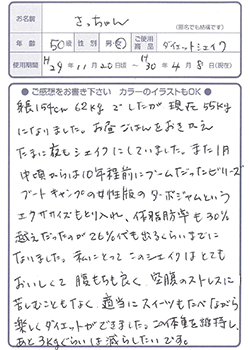 お名前 さっちゃん
(匿名でも結構です)
年齢 50歳 性別 男・女 ご使用商品 ダイエットシェイク
使用期間 H29年11月20日 ~ H30年4月8日(現在)
●ご感想をお書き下さい カラーのイラストもOK●
身長154cm 62kgでしたが現在55kg
になりました。お昼ごはんをおきかえ
たまに夜もシェイクにしていました。また1月
中頃からは10年程前にブームだったビリーズ
ブートキャンプの女性版のターボジャムという
エクササイズもとり入れ、体脂肪率も30%
越えだったのが26%代も出るくらいまでに
なりました。私にとってこのシェイクはとても
おいしくて腹もちも良く、空腹のストレスに
苦しむこともなく、適当にスイーツもたべながら
楽しくダイエットができました。この体重を維持し、
あと3kgぐらいは減らしたいです。